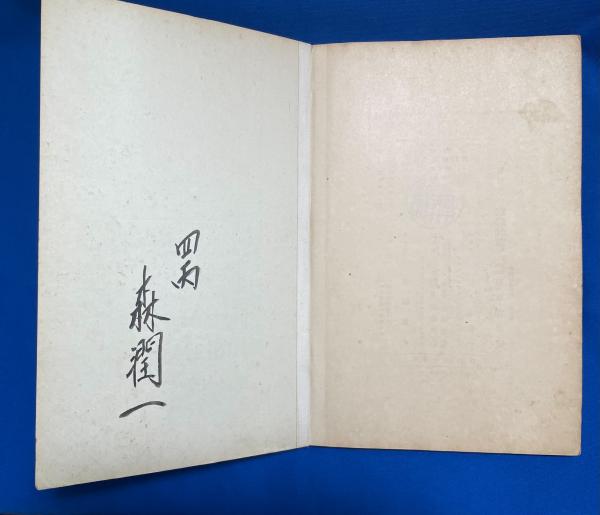 四丙
森潤一